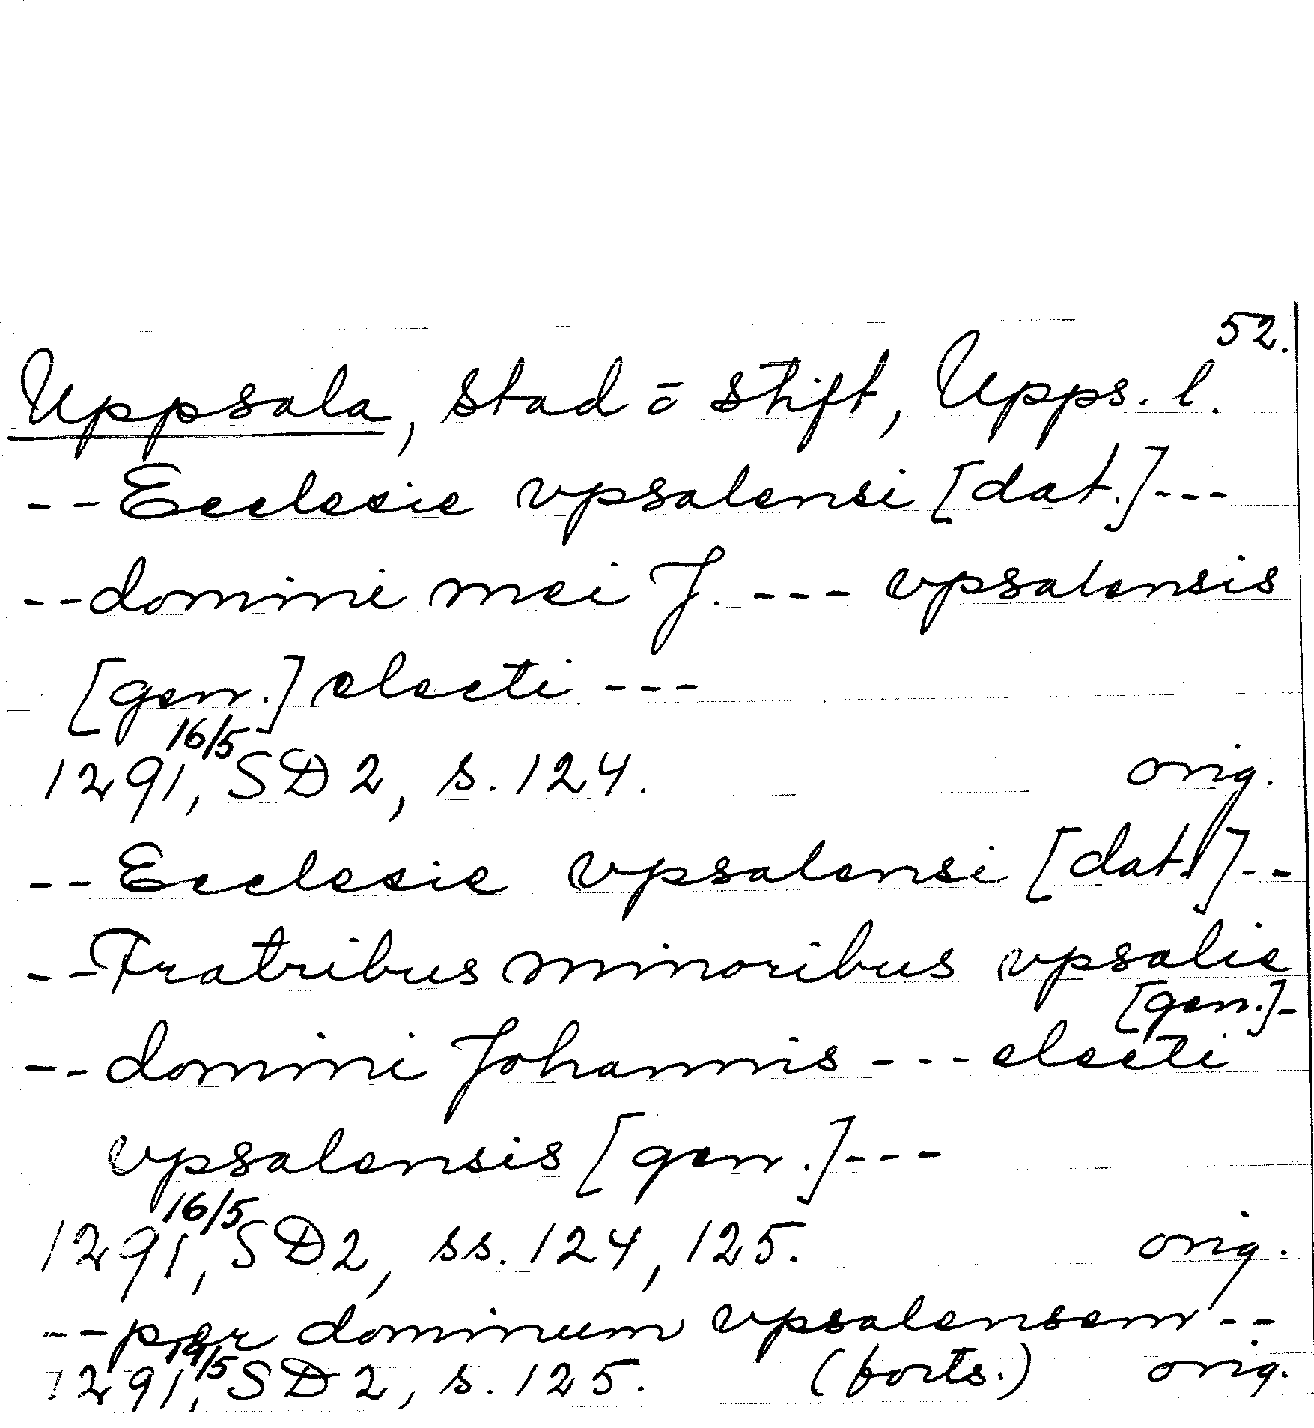 52.
Uppsala, stad o stift, Upps. l.
-- Ecclesie vpsalensi [dat.] ---
-- domini mei J. --- vpsalensis
[gen.] electi ---
1291 16/5, SD 2, s. 124. orig.
-- Ecclesie vpsalensi [dat.] --
-- Fratribus minoribus vpsalie
[gen.] -
-- domini Johannis --- electi
vpsalensis [gen.] ---
1291 16/5, SD 2, ss. 124, 125. orig.
-- per dominum vpsalensem --
1291, SD 2, s. 125. (forts.) orig.